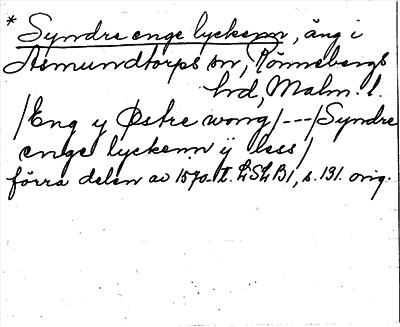 * Syndre enge lyckenn, äng i
Asmundtorps sn, Rönnebergs
hd, Malm. l.
/Eng y Østre wong/---/Syndre
enge lyckenn ÿ less/
förra delen av 1570-t. LSLB1, s. 131. orig.